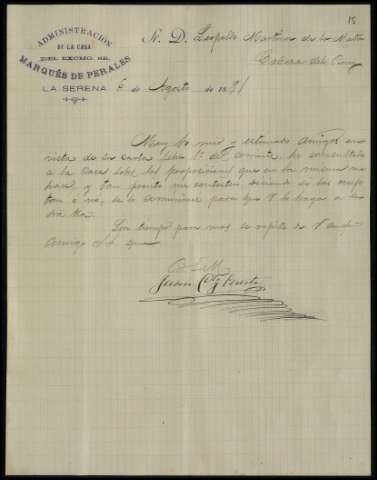 18
ADMINISTRACION
DE LA CASA
DEL EXCMO. SR.
MARQUÉS DE PERALES
LA SERENA
S. D. Leopoldo Martinez de la Mata
Cabeza del Buey
6 de Agosto de 189
Muy Sr mio y estimado amigo: en
vista de su carta fecha 1º del corriente, he consultado
a la Casa sobre las proposiciones que en la misma me
hace, y tan pronto me contesten diciendo si las acep
tan ó no, se lo comunicaré para que V. haga
Sin tiempo para mas se repite de V. affmo
amigo S. S. que
B. S. M.
Juan